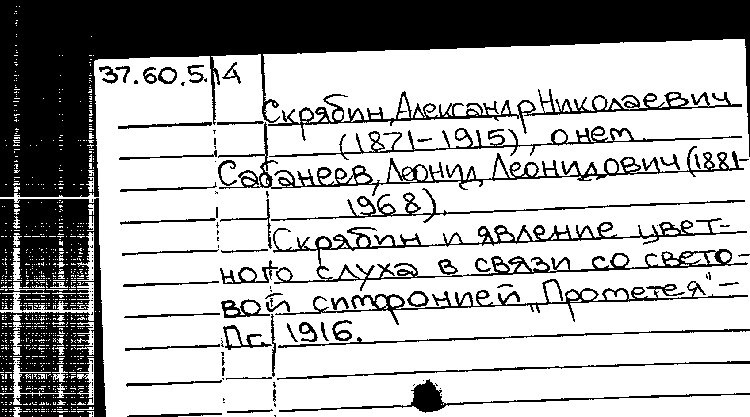 37.60.5.14
Скрябин, Александр Николаевич
(1871-1915), о нем.
Сабанеев, Леонид Леонидович (1881-
1968).
Скрябин и явление цвет-
ного слуха в связи со свето-
вой симфонией „Прометея" -
Пг. 1916.